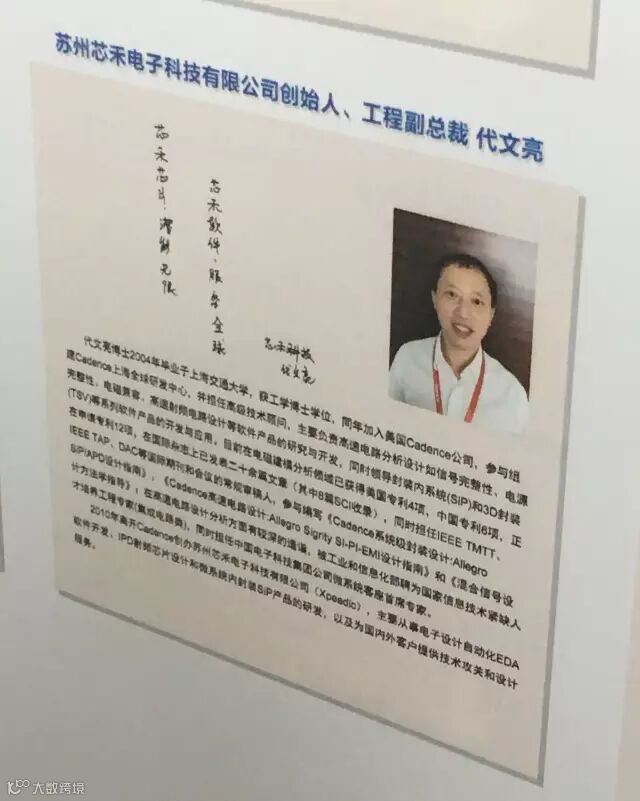 苏州芯禾电子科技有限公司创始人、工程副总裁 代文亮
芯禾芯片·潜能无限
芯禾软件·服务全球
芯禾科技
代文亮
代文亮博士2004年毕业于上海交通大学，获工学博士学位，同年加入美国Cadence公司，参与组
建Cadence上海全球研发中心，并担任高级技术顾问，主要负责高速电路分析设计如信号完整性、电源
完整性、电磁兼容、高速射频电路设计等软件产品的研究与开发，同时领导封装内系统(SiP)和3D封装
(TSV)等系列软件产品的开发与应用。目前在电磁建模分析领域已获得美国专利4项，中国专利6项，正
在申请专利12项，在国际杂志上已发表二十余篇文章（其中8篇SCI收录），同时担任IEEE TMTT、
IEEE TAP、DAC等国际期刊和会议的常规审稿人，参与编写《Cadence系统级封装设计:Allegro
SiP/APD设计指南》，《Cadence高速电路设计:Allegro Sigrity SI-PI-EMI设计指南》和《混合信号设
计方法学指导》；在高速电路设计分析方面有较深的造诣，被工业和信息化部聘为国家信息技术紧缺人
才培养工程专家(集成电路类)，同时担任中国电子科技集团公司微系统客座首席专家。
2010年离开Cadence创办苏州芯禾电子科技有限公司（Xpeedic），主要从事电子设计自动化EDA
软件开发、IPD射频芯片设计和微系统内封装SiP产品的研发，以及为国内外客户提供技术攻关和设计
服务。
大数跨境